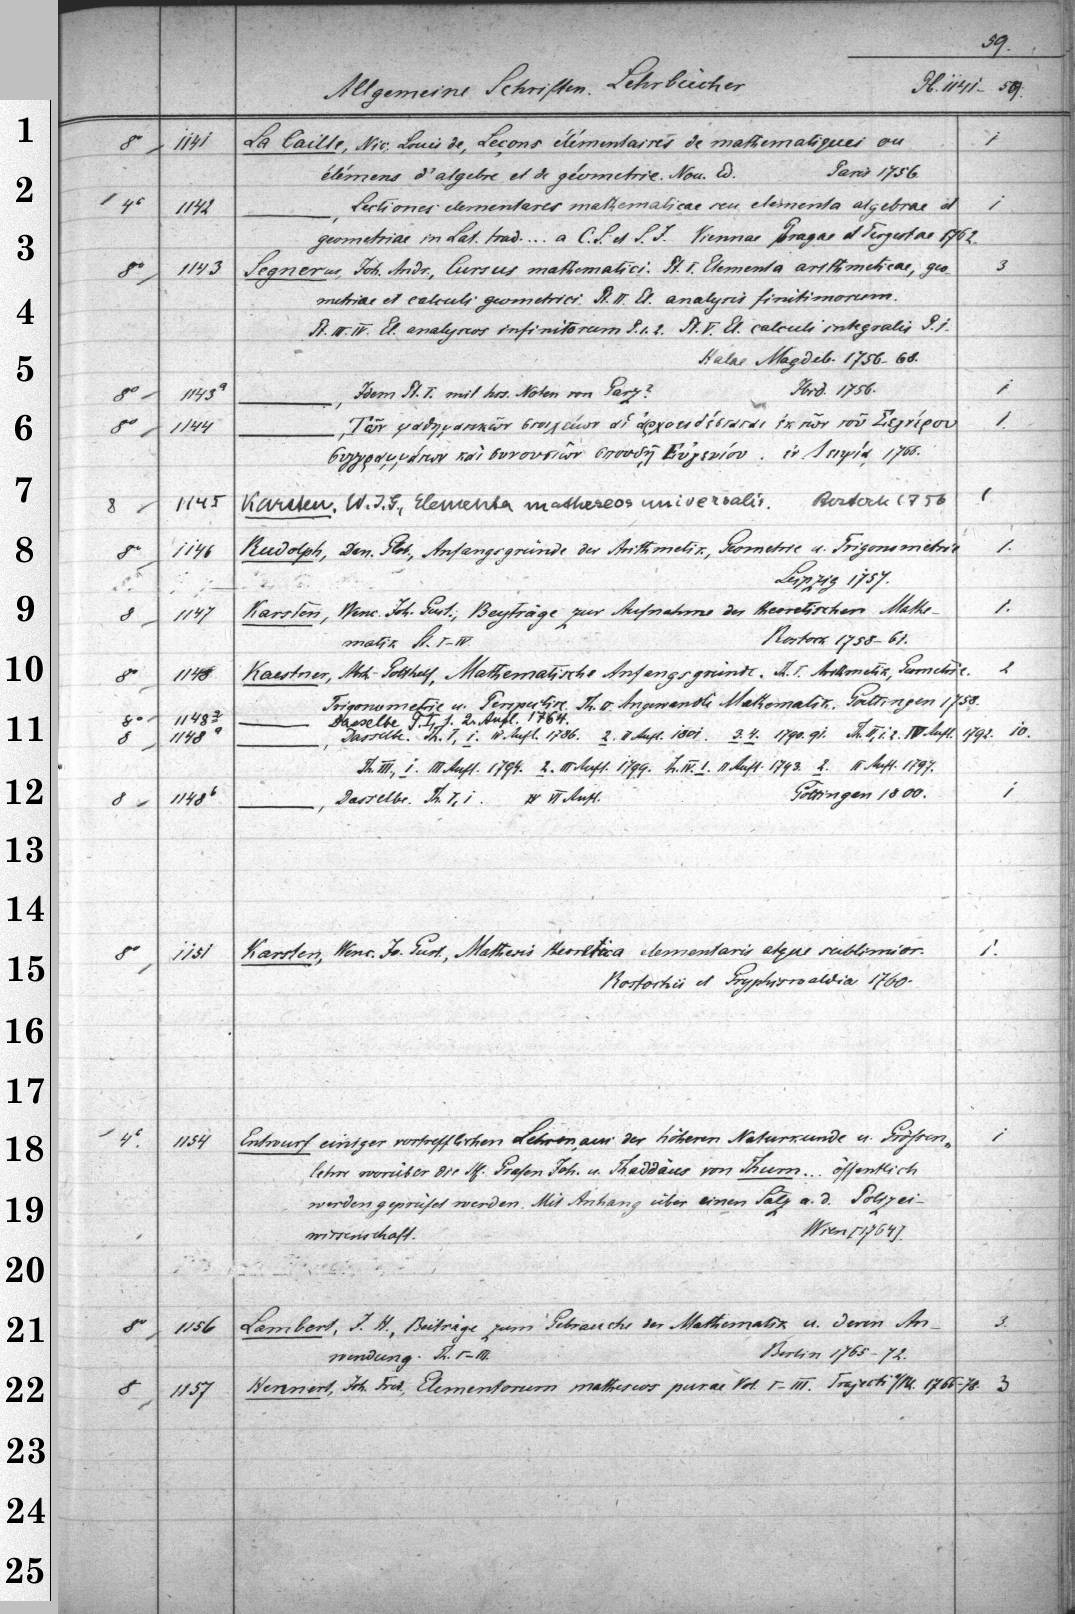 59.
Allgemeine Schriften. Lehrbücher Pl. 1141- 59.
1 8° 1141 La Caille, Nic. Louis de, Leçons élémentaires de mathematiques ou 1
élémens d'algebre et de géometrie. Nou. Ed. Paris 1756.
2 4° 1142 ———, Lectiones elementares mathematicae seu elementa algebrae et 1
geometriae in Lat. trad.... a C. S. et S. J. Viennae Pragae et Tergestae 1762.
3 8° 1143 Segnerus, Joh. Andr., Cursus mathematici. Pt. I. Elementa arithmeticae, geo- 3
4 metriae et calculi geometrici. Pt. II. El. analysis finitimorum.
Pt. III. IV. El. analyseos infinitorum P. 1. 2. Pt. V. El. calculi integralis P. 1.
5 Halae Magdeb. 1756-68.
8° 1143a ———, Idem Pt. I. mit hds. Noten von Ibid. 1756. 1
6 8° 1144 ———, Τῶν μαθηματικῶν στοιχείων αἱ ἐκ τῶν τοῦ Σεγνέρου 1.
συγγραμμάτων καὶ συνουσιῶν σπουδῇ Εὐγενίου. ἐν Λειψίᾳ 1766.
7 8 1145 Karsten, W. J. G., Elementa matheseos universalis. Rostock 1756 1
8 8° 1146 Rudolph, Dan. Glob., Anfangsgründe der Arithmetik, Geometrie u. Trigonometrie 1.
Leipzig 1757.
9 8 1147 Karsten, Wenc. Joh. Gust., Beyträge zur Aufnahme der theoretischen Mathe- 1.
matik St. I-IV Rostock 1758-61.
10 8° 1148 Kaestner, Abrh. Gotthelf, Mathematische Anfangsgründe. Th. I. Arithmetik, Geometrie. 2
Trigonometrie u. Perspective. Th. II Angewandte Mathematik. Göttingen 1758.
8° 1148 ——— Dasselbe T. I, 1. 2. Aufl. 1764.
11 8 1148a ———, Dasselbe. Th. I, 1. IV Aufl. 1786. 2. II Aufl. 1801. 3. 4. 1790. 91. Th. II, 1. 2. IV Aufl. 1792. 10.
Th. III, 1. III Aufl. 1794. 2. III Aufl. 1799. Th. IV. 1. II Aufl. 1793. 2. II Aufl. 1797.
12 8 1148b ———, Dasselbe. Th. I, 1. VI Aufl. Göttingen 1800. 1
13
14
15 8° 1151 Karsten, Wenc. Jo. Gust., Mathesis theoretica elementaris atque sublimior. 1.
Rostochii et Gryphiswaldia 1760.
16
17
18 4° 1154 Entwurf einiger vortrefflichen Lehren aus der höheren Naturkunde u. Grössen- 1
lehre worüber die Grafen Joh. u. Thaddäus von Thurn... öffentlich
19 werden geprüfet werden. Mit Anhang über einen Satz a. d. Polizei-
wissenschaft. Wien [1764].
20
21 8° 1156 Lambert, J. H., Beiträge zum Gebrauche der Mathematik u. deren An- 3.
wendung. Th. I-III. Berlin 1765-72.
22 8 1157 Hennert, Joh. Frid., Elementorum matheseos purae Vol. I-III. Trajecti a/Rh. 1766-78 3
23
24
25